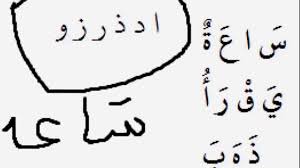 ا د ذ ر ز و
سَ ا عَ ةٌ
يَ قْ رَ أُ
ذَ هَ بَ
سَاعة